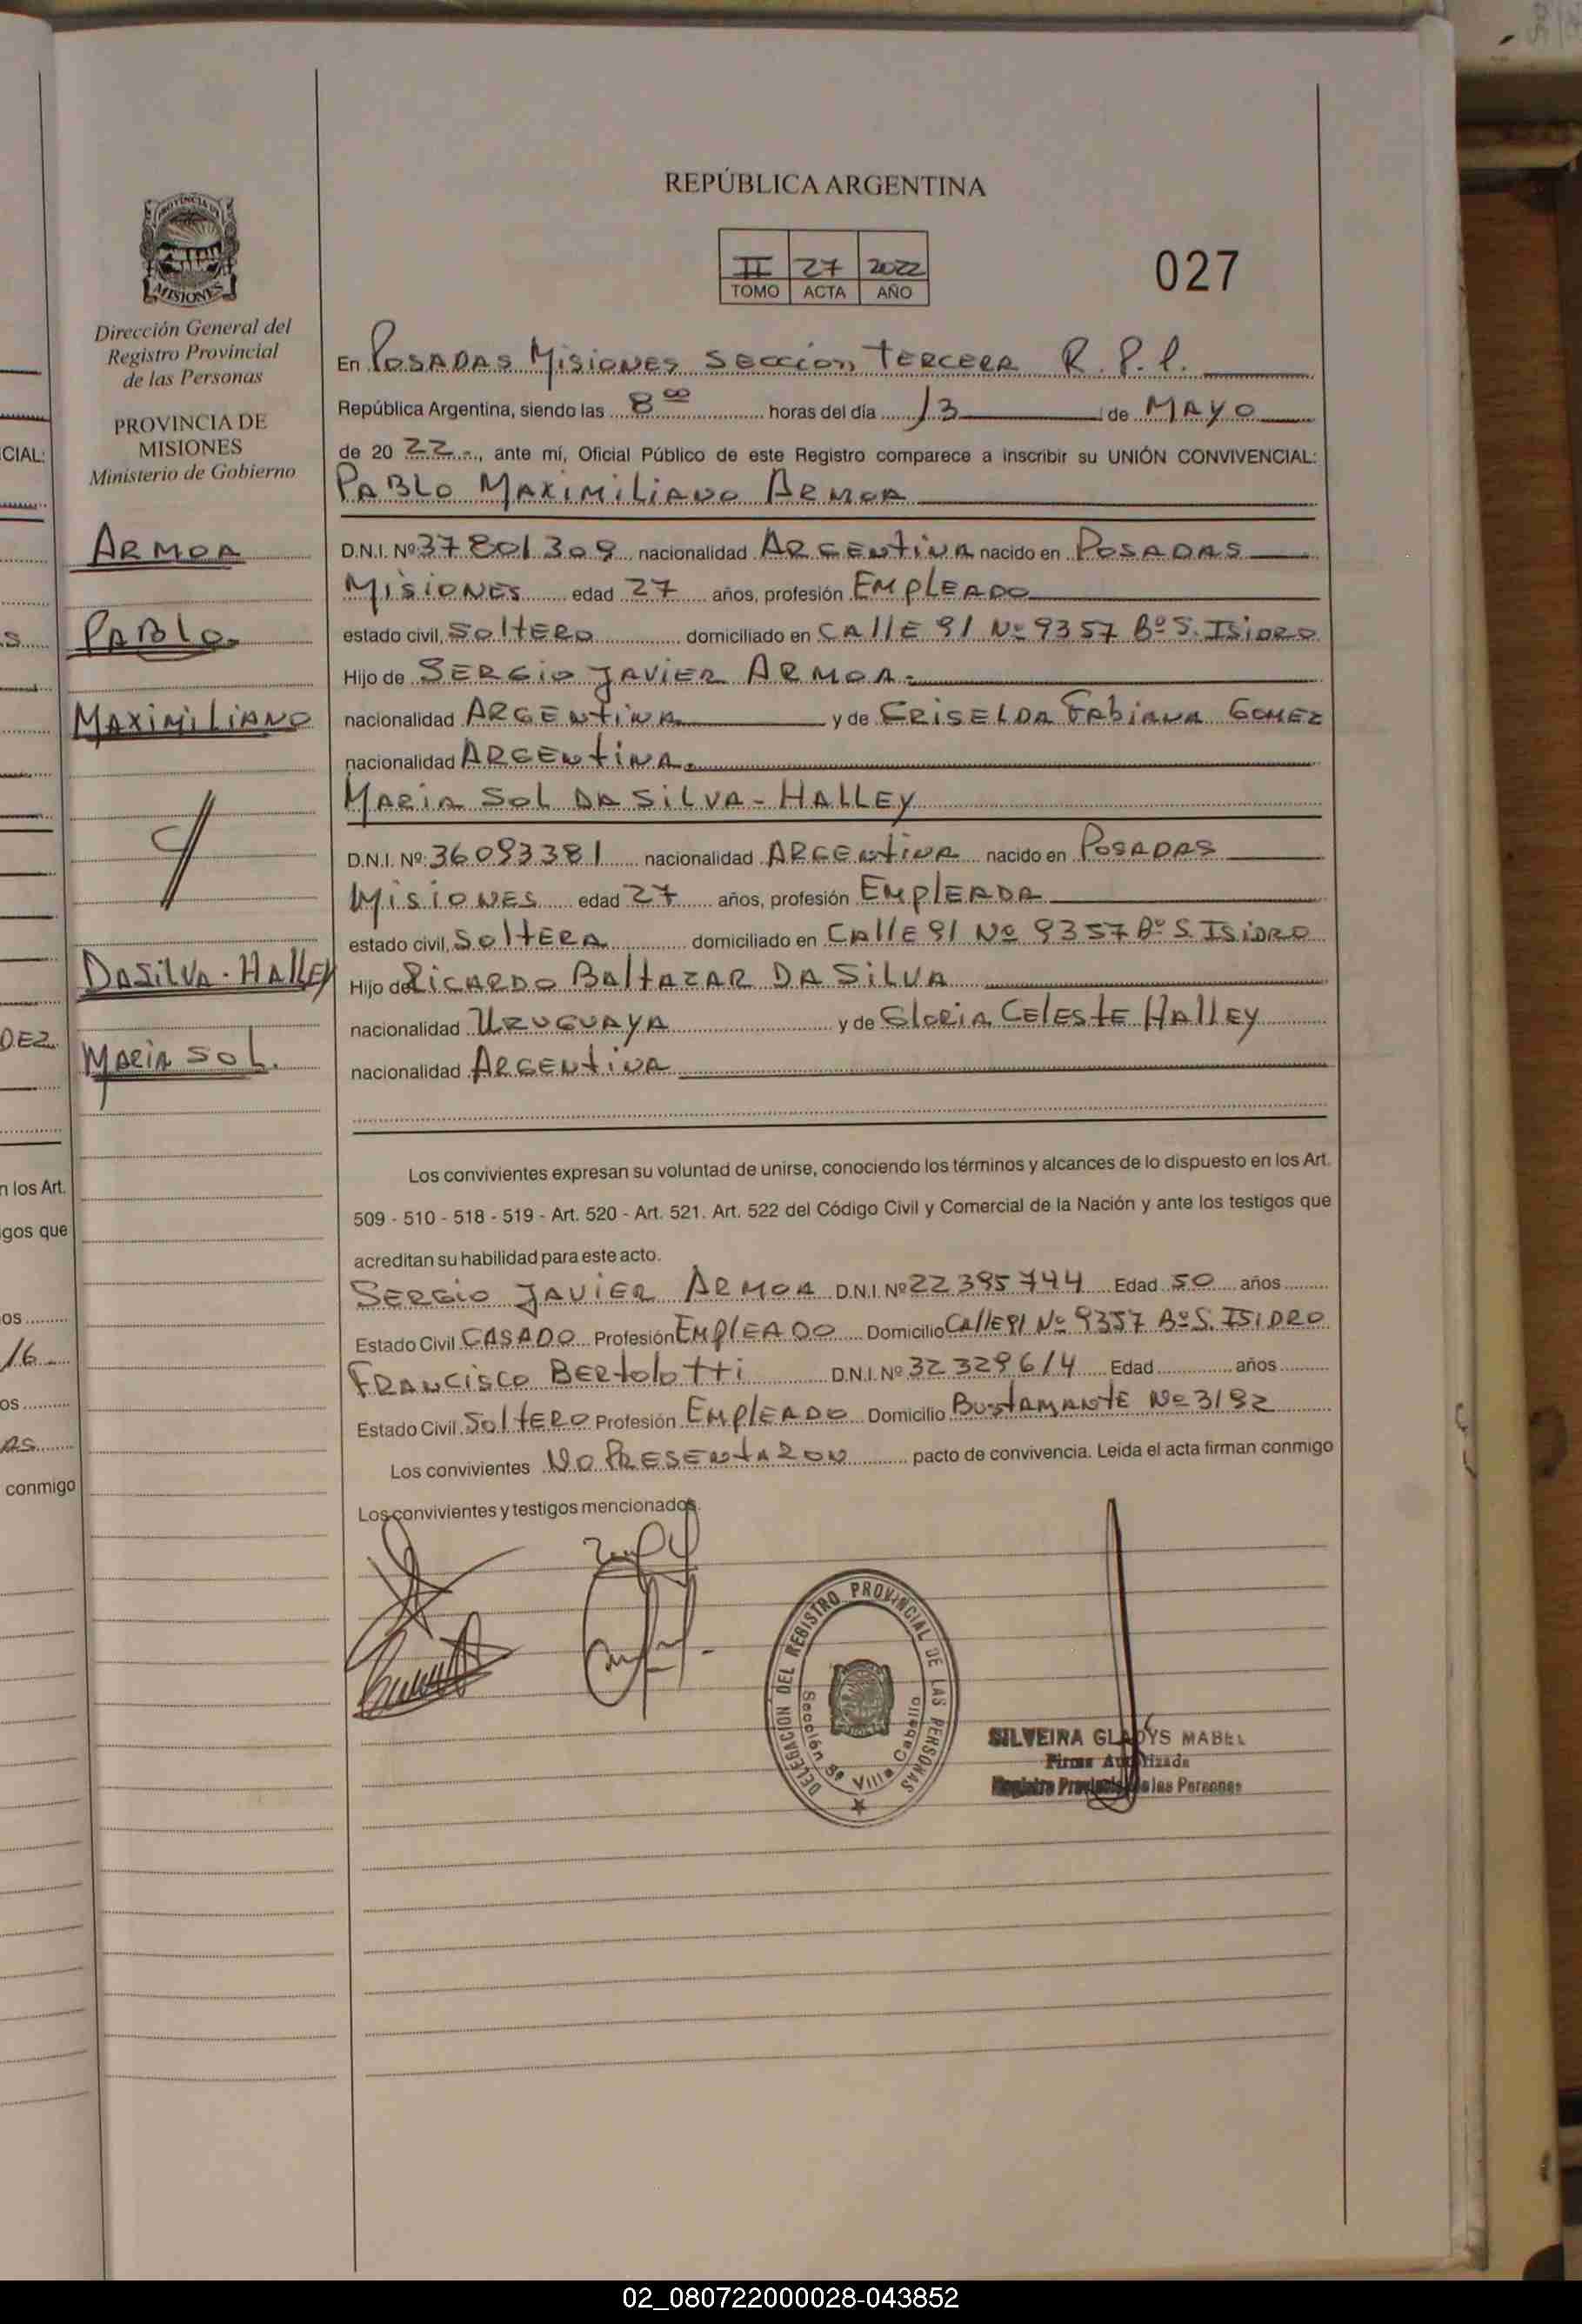 REPÚBLICA ARGENTINA
II 27 2022
TOMO ACTA AÑO
027
PROVINCIA DE
MISIONES
Dirección General del
Registro Provincial
de las Personas
PROVINCIA DE
MISIONES
Ministerio de Gobierno
ARMOA
PABLO
MAXIMILIANO
Y
DASILVA - HALLEY
MARIA SOL.
En POSADAS MISIONES SECCION TERCERA R. P. P.
República Argentina, siendo las 8 00 horas del día 13 de MAYO
de 20 22 -., ante mí, Oficial Público de este Registro comparece a inscribir su UNIÓN CONVIVENCIAL:
PABLO MAXIMILIANO ARMOA
D.N.I. Nº 37801309 nacionalidad ARGENTINA nacido en POSADAS
MISIONES edad 27 años, profesión EMPLEADO
estado civil, SOLTERO domiciliado en CALLE 91 Nº 9357 Bº S. ISIDRO
Hijo de SERGIO JAVIER ARMOA.
nacionalidad ARGENTINA y de GRISELDA FABIANA GOMEZ
nacionalidad ARGENTINA.
MARIA SOL DA SILVA - HALLEY
D.N.I. Nº: 36093381 nacionalidad ARGENTINA nacido en POSADAS
MISIONES edad 27 años, profesión EMPLEADA
estado civil, SOLTERA domiciliado en CALLE 91 Nº 9357 Bº S. ISIDRO
Hijo de RICARDO BALTAZAR DA SILVA
nacionalidad URUGUAYA y de GLORIA CELESTE HALLEY
nacionalidad ARGENTINA
Los convivientes expresan su voluntad de unirse, conociendo los términos y alcances de lo dispuesto en los Art.
509 - 510 - 518 - 519 - Art. 520 - Art. 521. Art. 522 del Código Civil y Comercial de la Nación y ante los testigos que
acreditan su habilidad para este acto.
SERGIO JAVIER ARMOA D.N.I. Nº 22395744 Edad 50 años
Estado Civil CASADO Profesión EMPLEADO Domicilio CALLE 91 Nº 9357 Bº S. ISIDRO
FRANCISCO BERTOLOTTI D.N.I. Nº 32329614 Edad años
Estado Civil SOLTERO Profesión EMPLEADO Domicilio BUSTAMANTE Nº 3192
Los convivientes NO PRESENTARON pacto de convivencia. Leída el acta firman conmigo
Los convivientes y testigos mencionados.
DELEGACION DEL REGISTRO PROVINCIAL DE LAS PERSONAS
Sección 3ª Villa Cabello
SILVEIRA GLADYS MABEL
Firma Autorizada
Registro Provincial de las Personas
CIAL:
S
DEZ
n los Art.
igos que
os
16
os
AS
conmigo
02_080722000028-043852